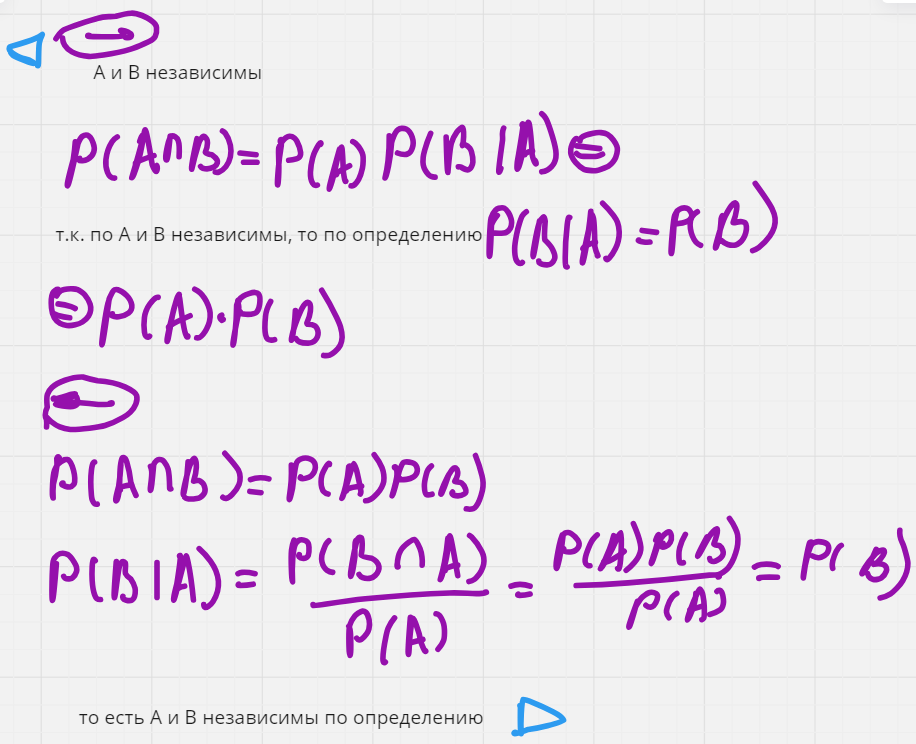 →
А и В независимы
P(A∩B)= P(A) P(B|A) =
т.к. по А и В независимы, то по определению P(B|A) = P(B)
= P(A)·P(B)
←
P(A∩B)= P(A)P(B)
P(B|A) = P(B∩A)/P(A) = P(A)P(B)/P(A) = P(B)
то есть А и В независимы по определению